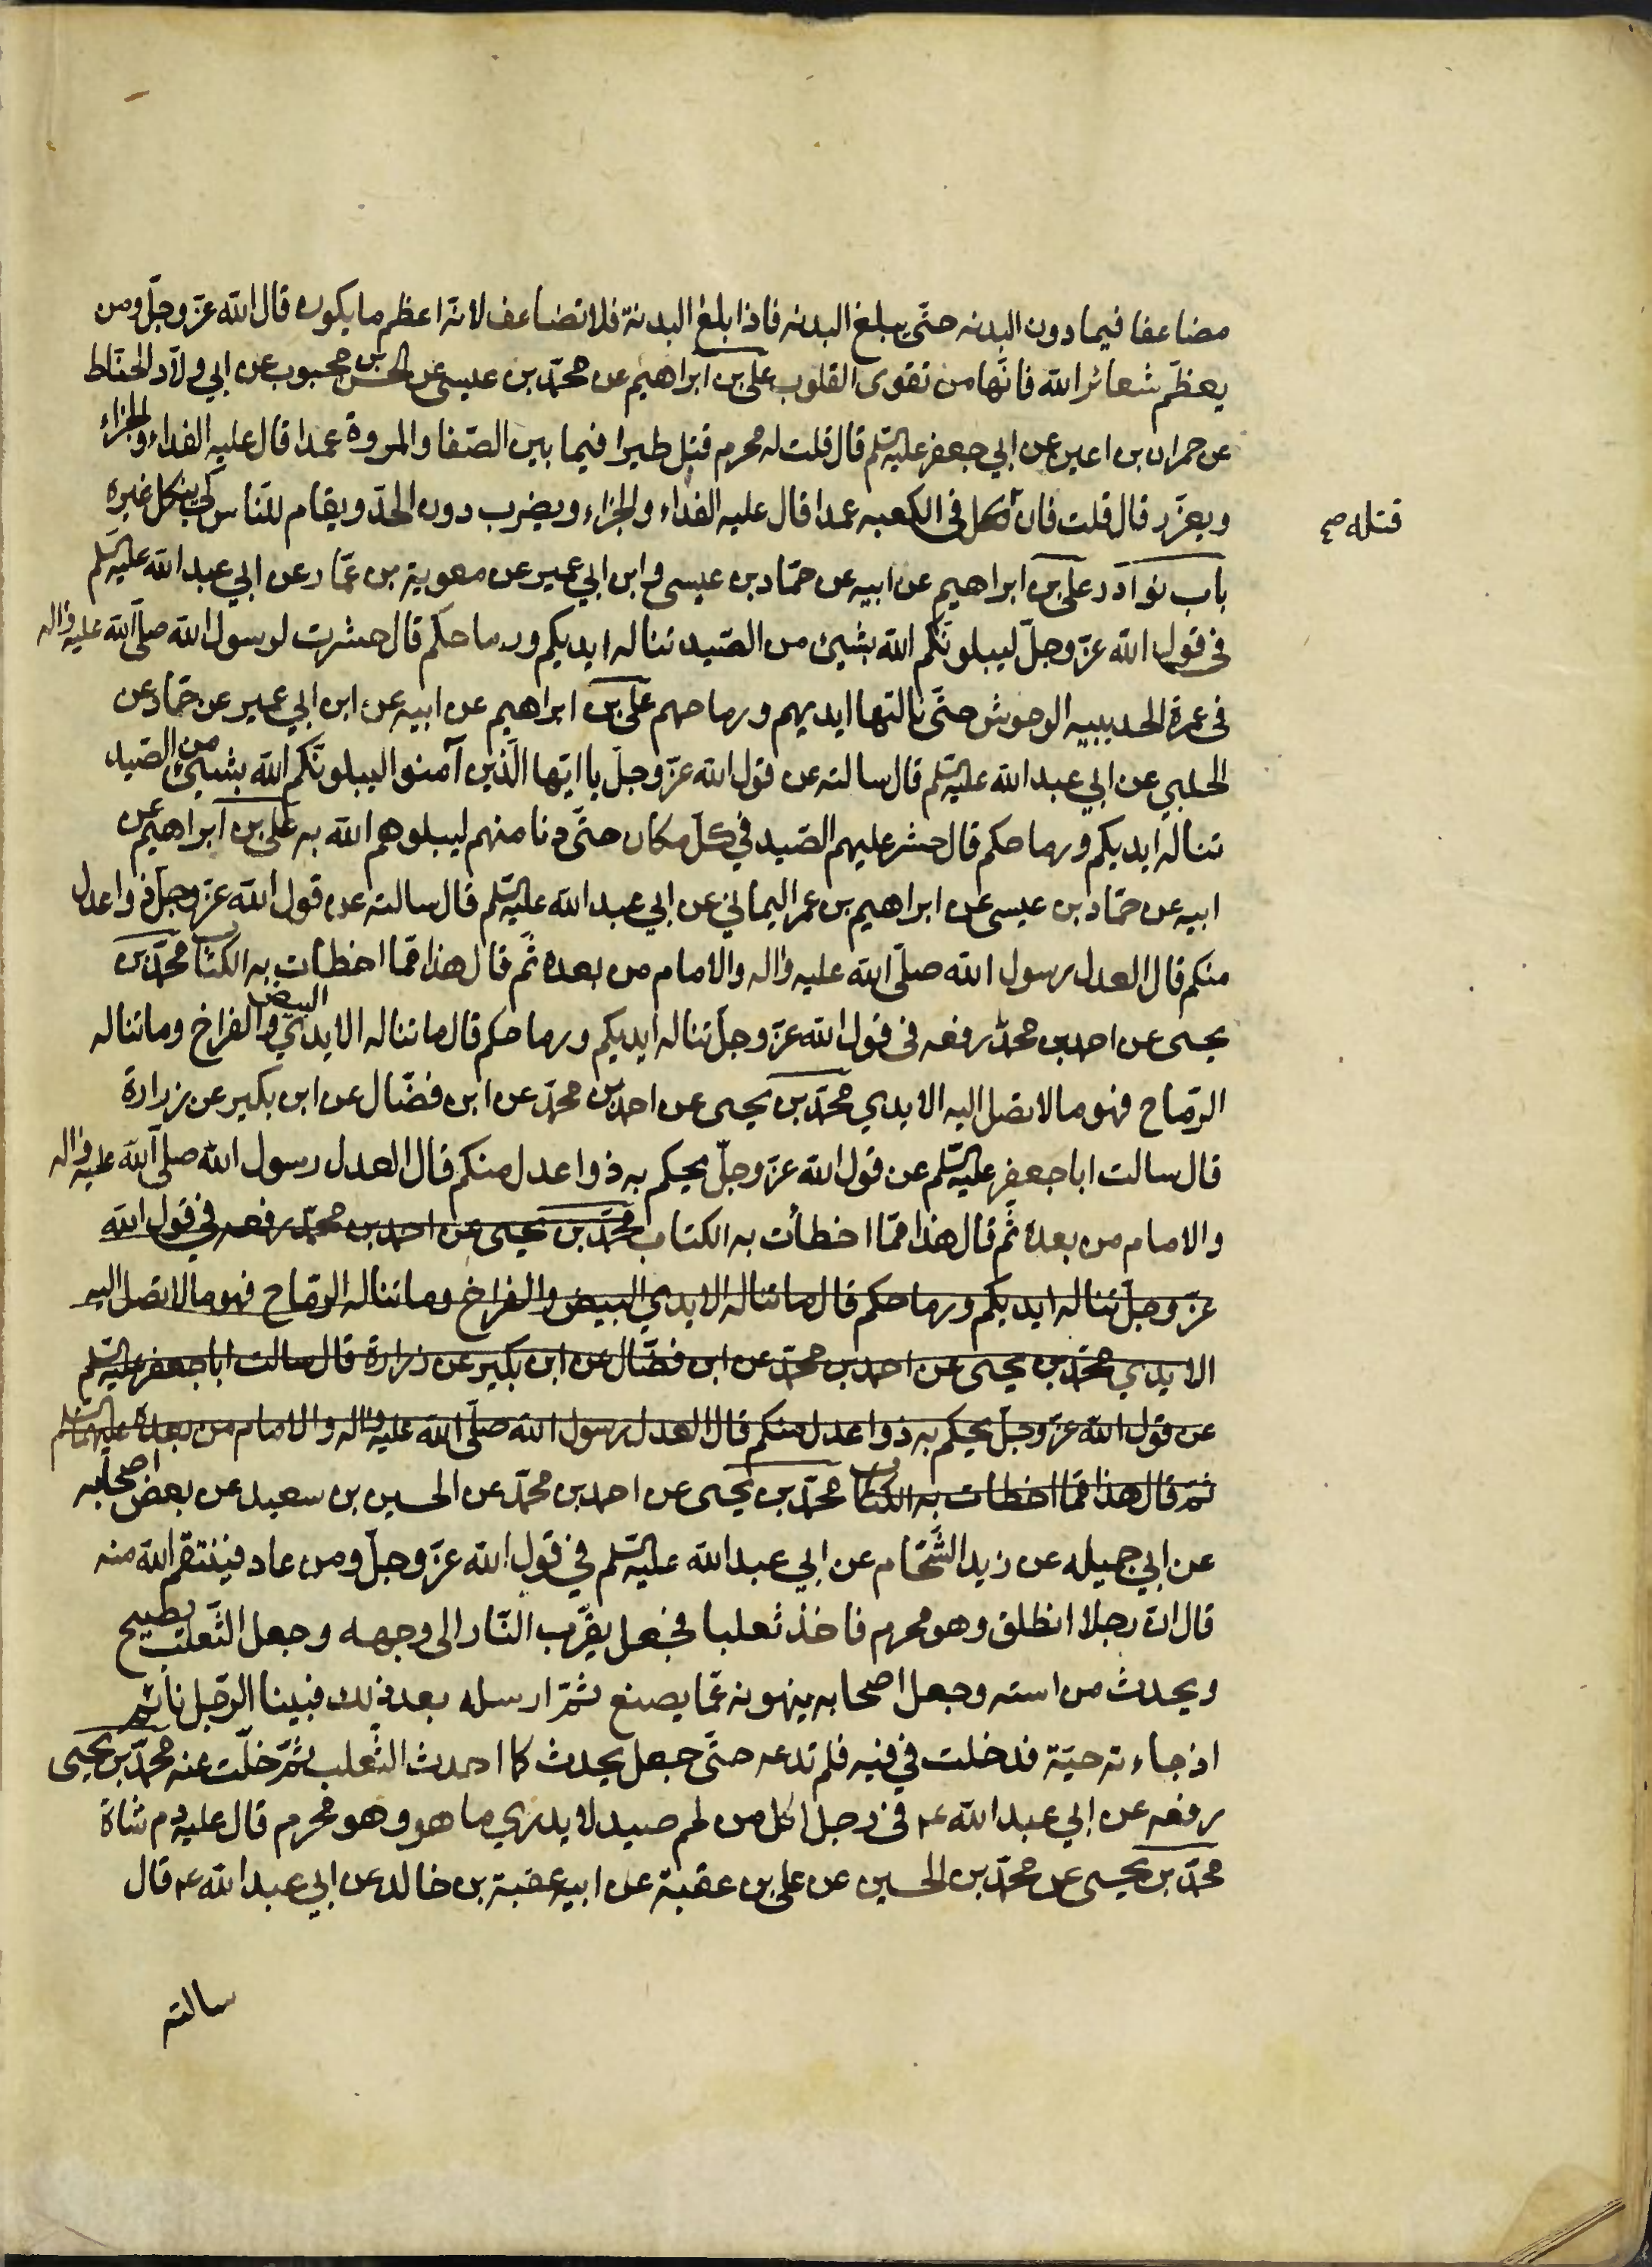 مضاعفا فيما دون البدنه حتّى يبلغ البدنه فاذا بلغ البدنة فلا تضاعف لانّه اعظم ما يكون قال الله عزّ وجلّ ومن
يعظّم شعائر الله فانّها من تقوى القلوب علىّ بن ابراهيم عن محمّد بن عيسى عن الحسن بن محبوب عن ابي ولّاد الحنّاط
عن حمران بن اعين عن ابي جعفر عليه السّلم قال قلت له محرم قتل طيرا فيما بين الصّفا والمروة عمدا قال عليه الفداء والجزاء
ويعزّر قال قلت فان اكل فى الكعبه عمدا قال عليه الفداء والجزاء ويضرب دون الحدّ ويقام للنّاس كى ينكل غيره
قتله صح
باب نوادر علىّ بن ابراهيم عن ابيه عن حمّاد بن عيسى وابن ابي عمير عن معوية بن عمّار عن ابي عبد الله عليه السّلم
فى قول الله عزّ وجلّ ليبلونّكم الله بشيئ من الصّيد تناله ايديكم ورماحكم قال حشرت لرسول الله صلّى الله عليه واله
فى عمرة الحديبيه الوحوش حتّى نالتها ايديهم ورماحهم علىّ بن ابراهيم عن ابيه عن ابن ابي عمير عن حمّاد عن
الحلبي عن ابي عبد الله عليه السّلم قال سالته عن قول الله عزّ وجلّ يا ايّها الّذين آمنوا ليبلونّكم الله بشيئ من الصّيد
تناله ايديكم ورماحكم قال حشر عليهم الصّيد في كلّ مكان حتّى دنا منهم ليبلوهم الله به علىّ بن ابراهيم عن
ابيه عن حمّاد بن عيسى عن ابراهيم بن عمر اليماني عن ابي عبد الله عليه السّلم قال سالته عن قول الله عزّ وجلّ ذوا عدل
منكم قال العدل رسول الله صلّى الله عليه واله والامام من بعده ثمّ قال هذا ممّا اخطات به الكتاب محمّد بن
يحيى عن احمد بن محمّد رفعه فى قول الله عزّ وجلّ تناله ايديكم ورماحكم قال ما تناله الايدي البيض والفراخ وما تناله
الرّماح فهو ما لا تصل اليه الايدي محمّد بن يحيى عن احمد بن محمّد عن ابن فضّال عن ابن بكير عن زرارة
قال سالت ابا جعفر عليه السّلم عن قول الله عزّ وجلّ يحكم به ذوا عدل منكم قال العدل رسول الله صلى الله عليه واله
والامام من بعده ثمّ قال هذا ممّا اخطأت به الكتاب محمّد بن يحيى عن احمد بن محمّد رفعه في قول الله
عزّ وجلّ تناله ايديكم ورماحكم قال ما تناله الايدي البيض والفراخ وما تناله الرّماح فهو ما لا تصل اليه
الايدي محمّد بن يحيى عن احمد بن محمّد عن ابن فضّال عن ابن بكير عن زرارة قال سالت ابا جعفر عليه السّلم
عن قول الله عزّ وجلّ يحكم به ذوا عدل منكم قال العدل رسول الله صلّى الله عليه واله والامام من بعده عليهما السّلم
ثمّ قال هذا ممّا اخطات به الكتاب محمّد بن يحيى عن احمد بن محمّد عن الحسين بن سعيد عن بعض اصحابه
عن ابي جميله عن زيد الشّحّام عن ابي عبد الله عليه السّلم في قول الله عزّ وجلّ ومن عاد فينتقم الله منه
قال انّ رجلا انطلق وهو محرم فاخذ ثعلبا فجعل يقرّب النّار الى وجهه وجعل الثّعلب يصيح
ويحدث من استه وجعل اصحابه ينهونه عمّا يصنع ثمّ ارسله بعد ذلك فبينا الرّجل نائم
اذ جاءته حيّة فدخلت في فيه فلم تدعه حتّى جعل يحدث كما احدث الثّعلب ثمّ خلّت عنه محمّد بن يحيى
رفعه عن ابي عبد الله ع في رجل اكل من لحم صيد لا يدري ما هو وهو محرم قال عليه دم شاة
محمّد بن يحيى عن محمّد بن الحسين عن على بن عقبة عن ابيه عقبة بن خالد عن ابي عبد الله ع قال
سالته